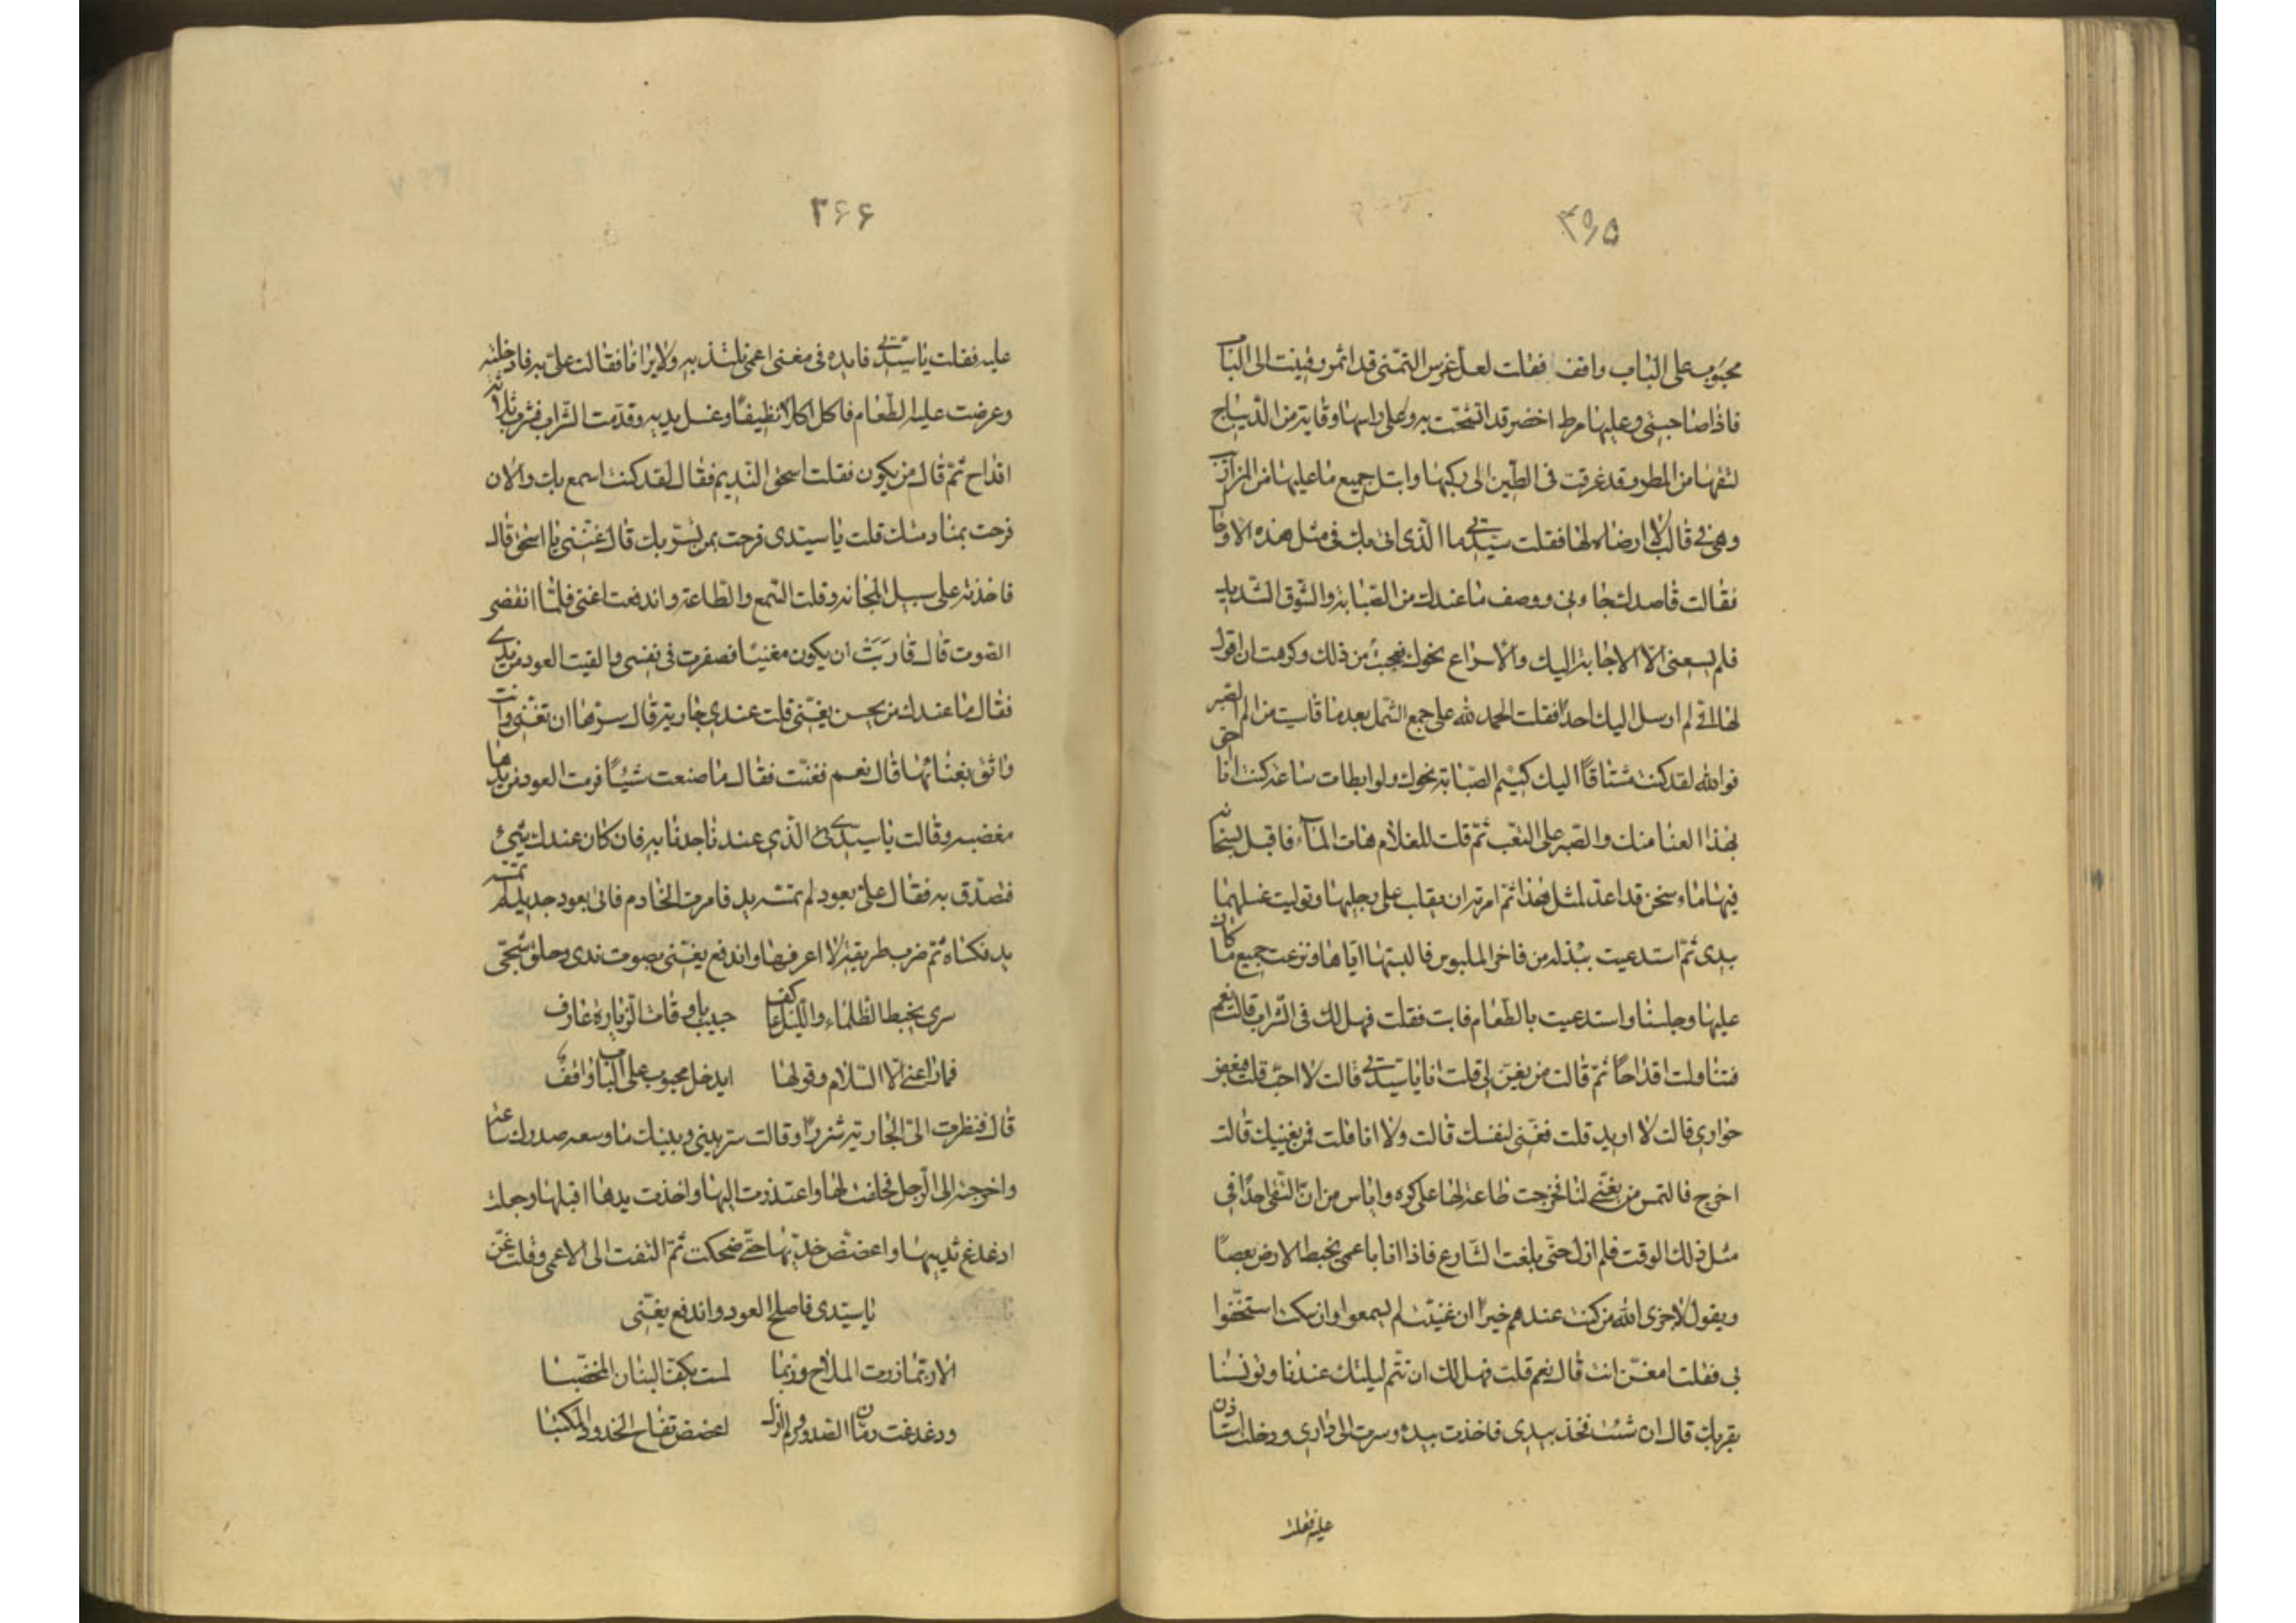 ٣٩٥
محبوب على الباب واقف فقلت لعل غرس التمنى قد اثمر وقمت الى الباب
فاذا صاحبتى وعليها مرط اخضر قد اتشحت به وعلى راسها وقاية من الديباج
لتقيها من المطر وقد غرقت فى الطين الى ركبتيها وابتل جميع ما عليها من المزاريب
وهى فى قالب لا ارضاه لها فقلت سيدتى ما الذى اتى بك فى مثل هذه الاوحال
فقالت قاصدك جاءنى ووصف ما عندك من الصبابة والشوق الشديد
فلم يسعنى الا الاجابة اليك والاسراع نحوك فعجبت من ذلك وكرهت ان اقول
لها انى لم ارسل اليك احدا فقلت الحمد لله على جمع الشمل بعد ما قاسيت من الم الصبر
فوالله لقد كنت مشتاقا اليك كثير الصبابة نحوك ولو ابطات ساعة كنت انا احق
بهذا العنا منك والصبر على التعب ثم قلت للغلام هات الماء فاقبل بسخانه
فيها ماء سخن قد اعد لمثل هذا ثم امرته ان يقلب على رجليها وتوليت غسلهما
بيدى ثم استدعيت ببذلة من فاخر الملبوس فالبستها اياها ونزعت جميع ما كان
عليها وجلسنا واستدعيت بالطعام فابت فقلت فهل لك فى الشراب قالت نعم
فتناولت اقداحا ثم قالت من يغنى لى قلت انا يا سيدتى قالت لا احب قلت فبعض
جوارى قالت لا اريد قلت فغنى لنفسك قالت ولا انا قلت فمن يغنيك قالت
اخرج فالتمس من يغنى لنا فخرجت طاعة لها على كره واياس من ان التقى احدا فى
مثل ذلك الوقت فلم ازل حتى بلغت الشارع فاذا انا باعمى يخبط الارض بعصا
ويقول لا جزى الله من كنت عندهم خيرا ان غنيت لم يسمعوا وان سكت استخفوا
بى فقلت امغن انت قال نعم قلت فهل لك ان تتم ليلتك عندنا وتونسنا
بقربك قال ان شئت فخذ بيدى فاخذت بيده وسرت الى دارى ودخلت استاذن
عليه فقلت
٣٦٦
عليه فقلت يا سيدتى فايده فى مغنى اعمى نلتذ به ولا يرانا فقالت على به فادخلته
وعرضت عليه الطعام فاكل اكلا نظيفا وغسل يديه وقدمت الشراب فشرب ثلاثة
اقداح ثم قال من يكون فقلت اسحق النديم فقال لقد كنت اسمع بك والان
فرحت بمنادمتك قلت يا سيدى فرحت بمن يسر بك قال غننى يا اسحق قال
فاخذته على سبيل المجانه وقلت السمع والطاعة واندفعت اغنى فلما انقضى
الصوت قال قاربت ان يكون مغنيا فصغرت فى نفسى والقيت العود من يدى
فقال ما عندك من يحسن يغنى قلت عندى جارية قال مرها ان تغنى وانت
واثق بغنائها قال نعم فغنت فقال ما صنعت شيئا فرمت العود من يدها
مغضبه وقالت يا سيدى الذى عندنا جدنا به فان كان عندك شىء
فتصدق به فقال على بعود لم تمسه يد فامرت الخادم فاتى بعود جديد لم تمسه
يد فكناه ثم ضرب طريقة لا اعرفها واندفع يغنى بصوت ندى وحلق شجى
سرى يخبط الظلماء والليل عاكف حبيب باوقات الزيارة عارف
فما راعنى الا السلام وقولها ايدخل محبوب على الباب واقف
قال فنظرت الى الجارية شزرا وقالت سر بينى وبينك ما وسعه صدرك ساعة
واخرجته الى الرجل فحلفت لها واعتذرت اليها واخذت يدها اقبلها وجعلت
ادغدغ ثدييها واعضض خديها حتى ضحكت ثم التفت الى الاعمى وقلت غن
يا سيدى فاصلح العود واندفع يغنى
الا ربما زرت الملاح وربما لمست بكفى البنان المخضبا
ودغدغت رمان الصدور ولم ازل اعضض تفاح الخدود المكتبا